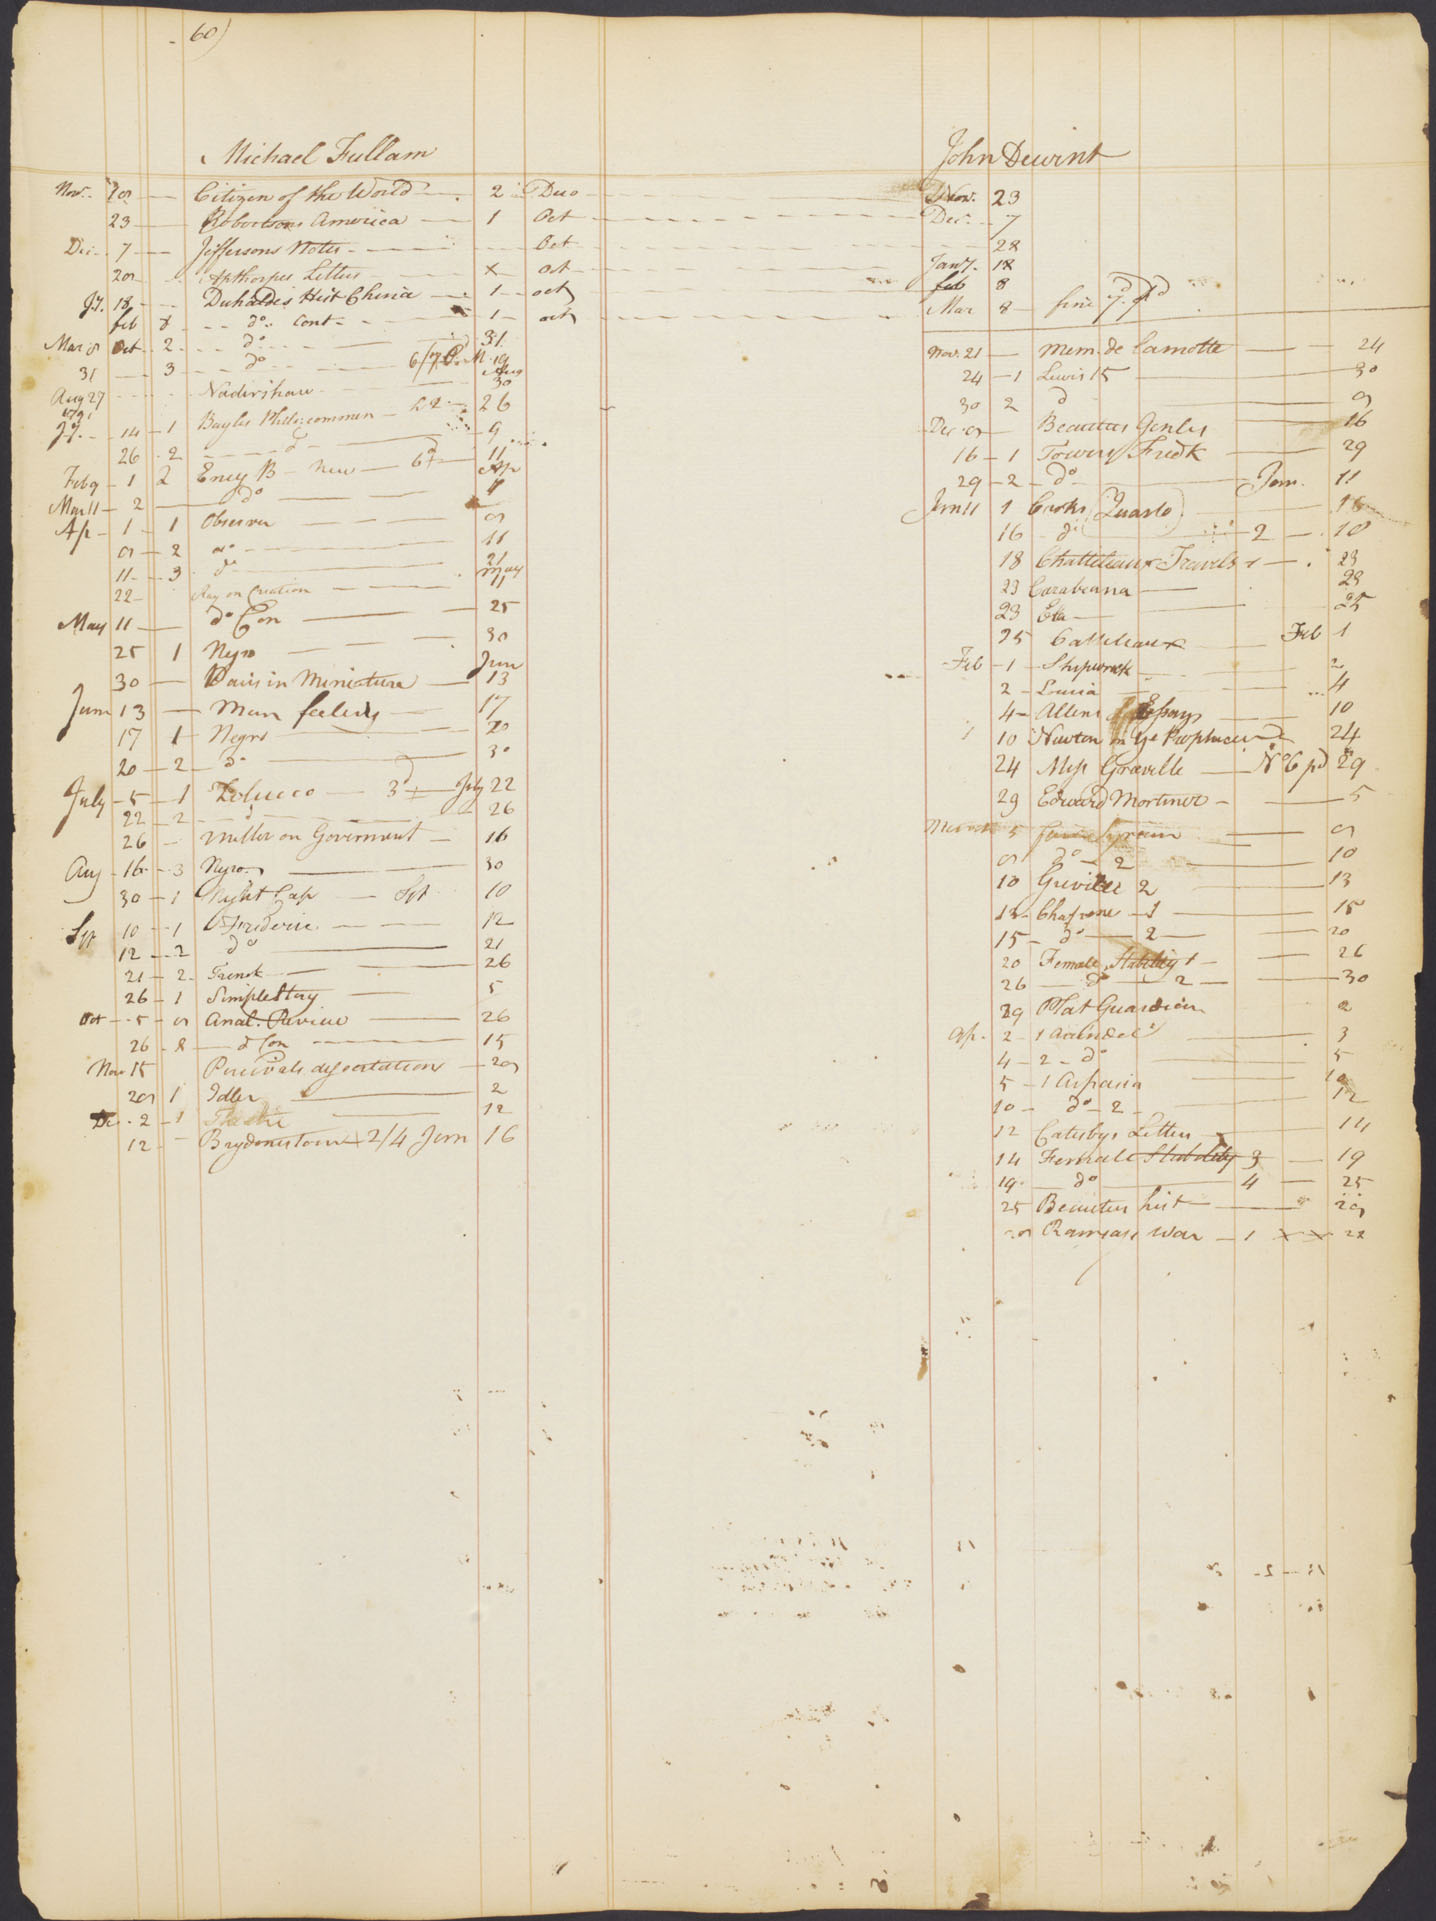 60)
Michael Fullam
Nov. 20 — Citizen of the World — 2 Duo — Nov. 23
23 — Robertsons America — 1 Oct — Dec. 7
Dec. 7 — Jeffersons Notes — Oct — 28
Apthorpes Letters — X Oct — Jany. 18
Jy. 18 — Duhaldes Hist China — 1 — oct — feb 8
feb 8 — do. Cont — 1 — oct — Mar 8 — fine
Mar 8 Oct 2 — do — 31
31 — 3 — do — 19
Aug 27 — Nadirshaw — 30
Jy. 14 — 1 Bayles Philo: commen — 26
26 2 — do — 9
Feb 9 — 1 2 Ency B — New — 6d — 11
Mar 11 — 2 — do — Ap
Ap — 1 — 1 Observer
2 do — 11
11 — 3 do — 21
22 — Ray on Creation — May 11
May 11 — do Con — 25
25 1 Negro — 30
30 — Paris in Miniature — June 13
June 13 — Man feelings — 17
17 1 — Negro — 20
20 — 2 — do — 30
July — 5 — 1 Zeluco — 3d — July 22
22 — 2 — do — 26
26 — Miller on Goverment — 16
Aug — 16 — 3 Negro — 30
30 — 1 Night Cap — Spt 10
Spt 10 — 1 Frederic — 12
12 — 2 do — 21
21 — 2 Trenck — 26
26 — 1 Simple Story — 5
Oct — 5 — Anal. Review — 26
26 — 8 — d Con — 15
Nov 15 Percivals dissertation — 20
20 1 Idler — 2
De. 2 — 1 — 12
12 — Brydones tour — 2/4 Jan 16
John Dewint
Nov. 21 — Mem. de Lamotte — 24
24 — 1 Lewis 15 — 30
30 2 d
Dec. — Beauties Genlis — 16
16 — 1 Towers Fredk — 29
29 — 2 — do — Jan. 11
Jan 11 1 Cooks (Quarto) — 16
16 — do — 2 — 18
18 Chattelaux Travels 1 — 23
23 Carabeana — 23
23 Eta — 25
25 Cattelaux — Feb 1
Feb — 1 — Shipwreck — 2
2 — Louisa — 4
4 — Allens Essays — 10
10 Newton on ye Prophecies — 24
24 Miss Greville — No 6 pd 29
29 Edward Mortimer — 5
March 5
do — 2 — 10
10 Greville 2 — 13
13 — Chapone — 1 — 15
15 — do — 2 — 20
20 Female Stability 1 — 26
26 — do — 2 — 30
29 Plat Guardian 2
Ap. 2 — 1 Arundel — 3
4 — 2 — do — 5
5 — 1 Aspasia — 10
10 — do — 2 — 12
12 Catesbys Letters — 14
14 Female Stability 3 — 19
19 — do — 4 — 25
25 Beauties hist
Ramsays War — 1 X X 28